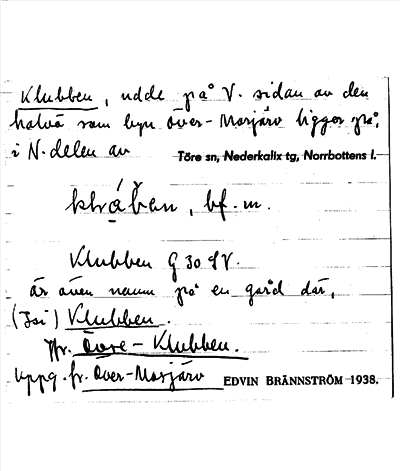 Klubben, udde på V. sidan av den
halvö som byn Över-Morjärv ligger på,
i N. delen av Töre sn, Nederkalix tg, Norrbottens l.
bf. m.
Klubben G 30 SV.
är även namn på en gård där,
(Isi) Klubben.
Jfr. Övre-Klubben.
Uppg. fr. Över-Morjärv EDVIN BRÄNNSTRÖM 1938.